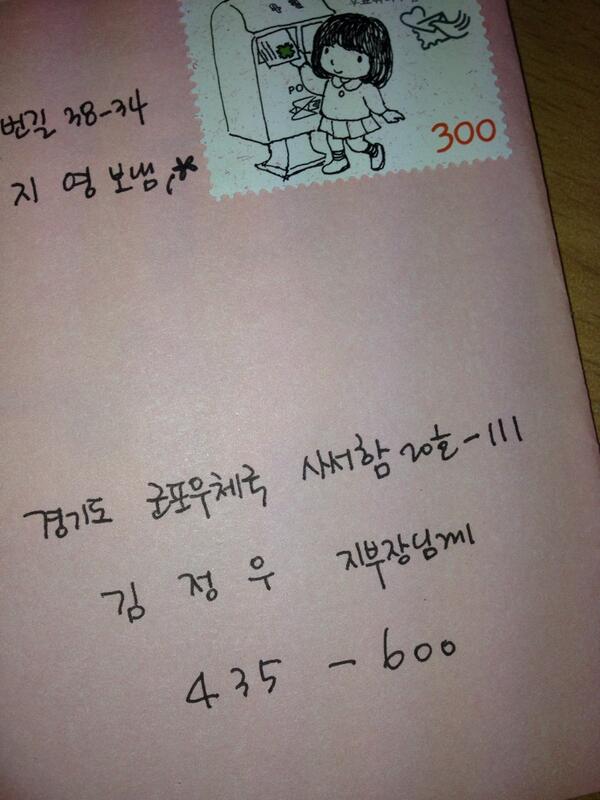 300
번길 38-34
지 영 보냄,*
경기도 군포우체국 사서함 20호-111
김 정 우 지부장님께
435-600